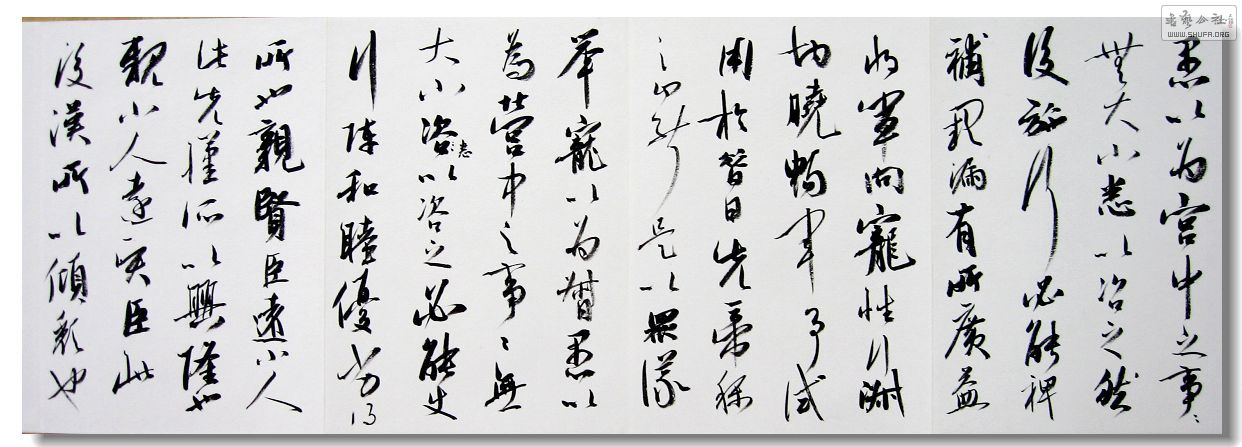 愚以为宫中之事〻
無大小悉以咨之然
後施行必能裨
補闕漏有所廣益
将軍向寵性行淑
均曉暢軍事試
用於昔日先帝稱
之曰能是以眾議
举寵以为督愚以
為营中之事〻無
大小咨悉以咨之必能使
行陣和睦優劣得
所也親賢臣遠小人
此先漢所以興隆也
親小人遠賢臣此
後漢所以傾頹也
書藝公社
WWW.SHUFA.ORG